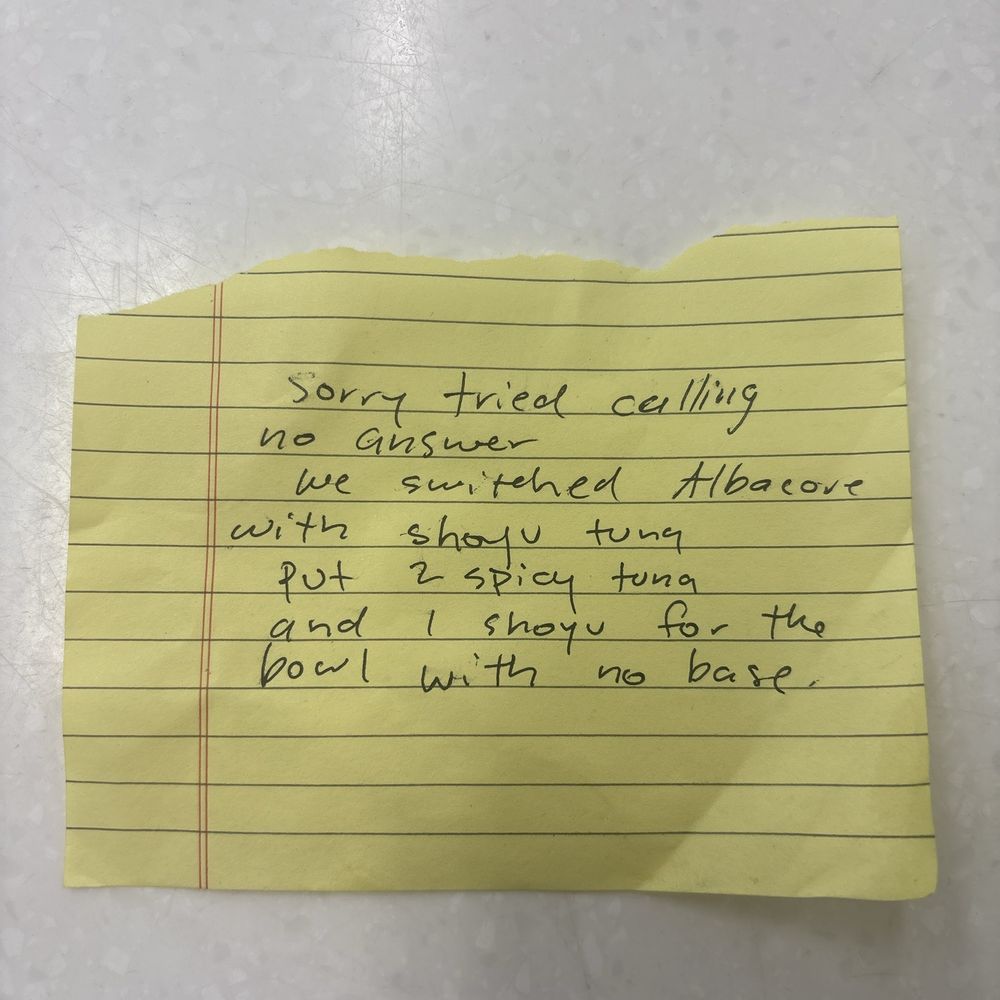 Sorry tried calling
no answer
we switched Albacore
with shoyu tuna
Put 2 spicy tuna
and 1 shoyu for the
bowl with no base.